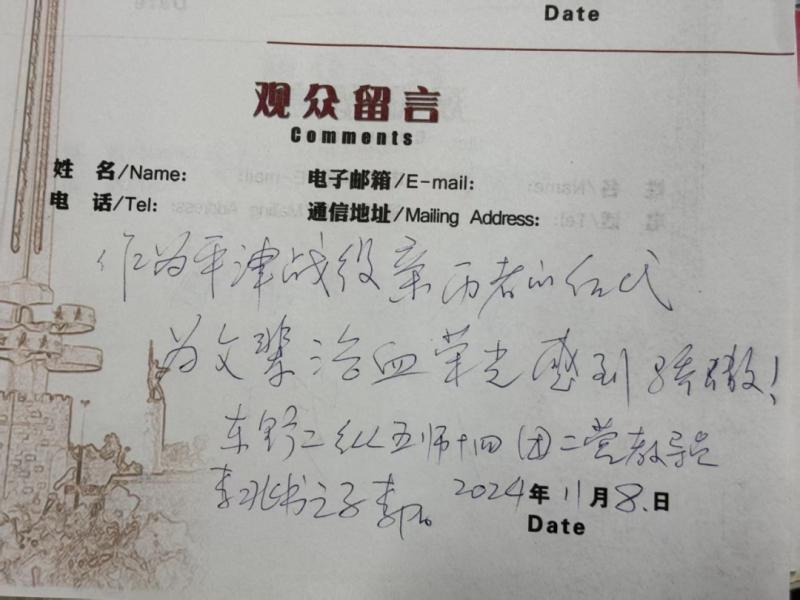 Date
观众留言
Comments
姓 名/Name: 电子邮箱/E-mail:
电 话/Tel: 通信地址/Mailing Address:
作为平津战役亲历者的后代
为父辈浴血荣光感到骄傲!
东野二纵五师十四团二营教导员
李兆书之子李 2024年11月8.日
Date